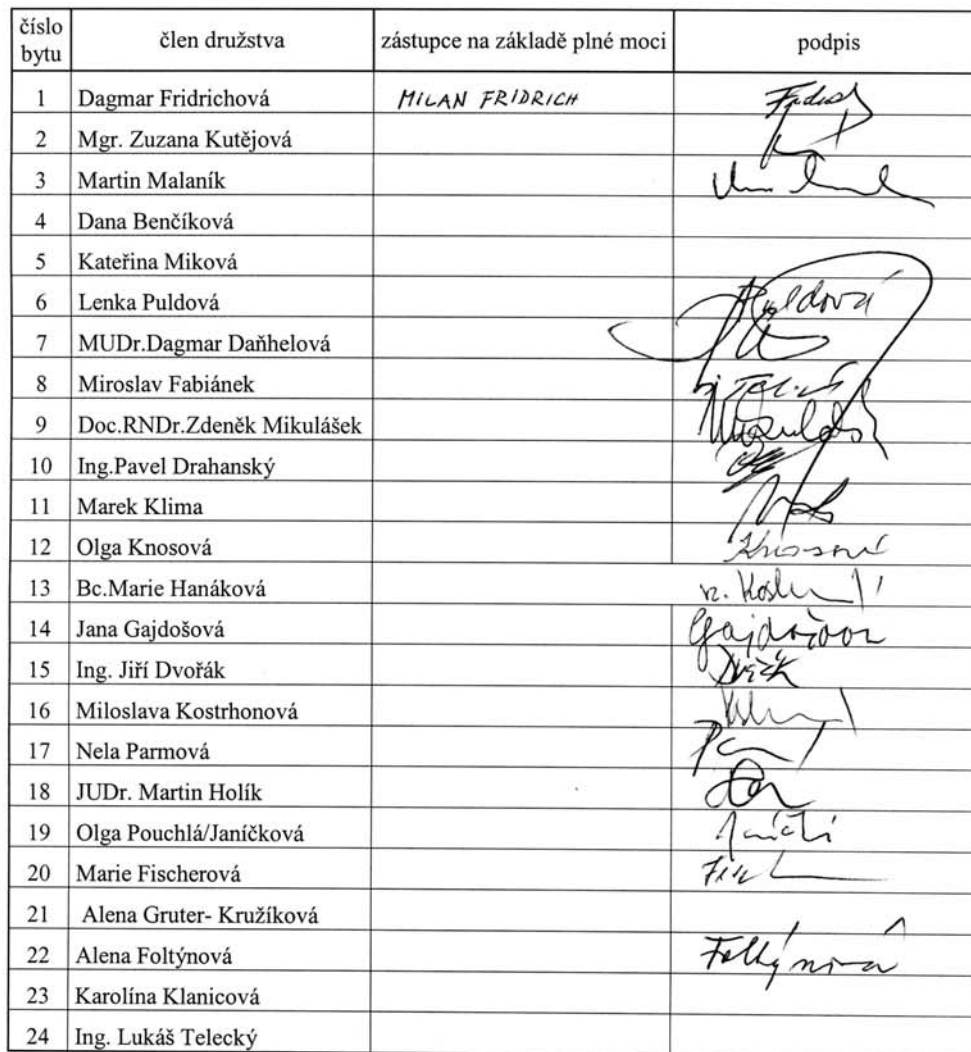 číslo bytu člen družstva zástupce na základě plné moci podpis
1 Dagmar Fridrichová MILAN FRIDRICH
2 Mgr. Zuzana Kutějová
3 Martin Malaník
4 Dana Benčíková
5 Kateřina Miková
6 Lenka Puldová Puldová
7 MUDr.Dagmar Daňhelová
8 Miroslav Fabiánek
9 Doc.RNDr.Zdeněk Mikulášek
10 Ing.Pavel Drahanský
11 Marek Klima
12 Olga Knosová Knosová
13 Bc.Marie Hanáková
14 Jana Gajdošová Gajdošová
15 Ing. Jiří Dvořák
16 Miloslava Kostrhonová
17 Nela Parmová
18 JUDr. Martin Holík
19 Olga Pouchlá/Janíčková
20 Marie Fischerová
21 Alena Gruter- Kružíková
22 Alena Foltýnová Foltýnová
23 Karolína Klanicová
24 Ing. Lukáš Telecký